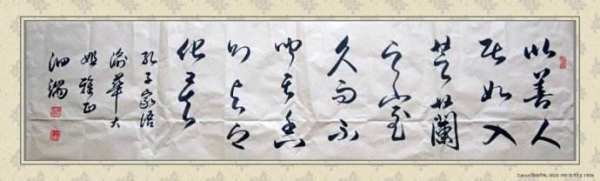 与善人
居如入
芝蘭
之室
久而不
闻其香
则与之
化矣
孔子家语
渝華大
姐雅正